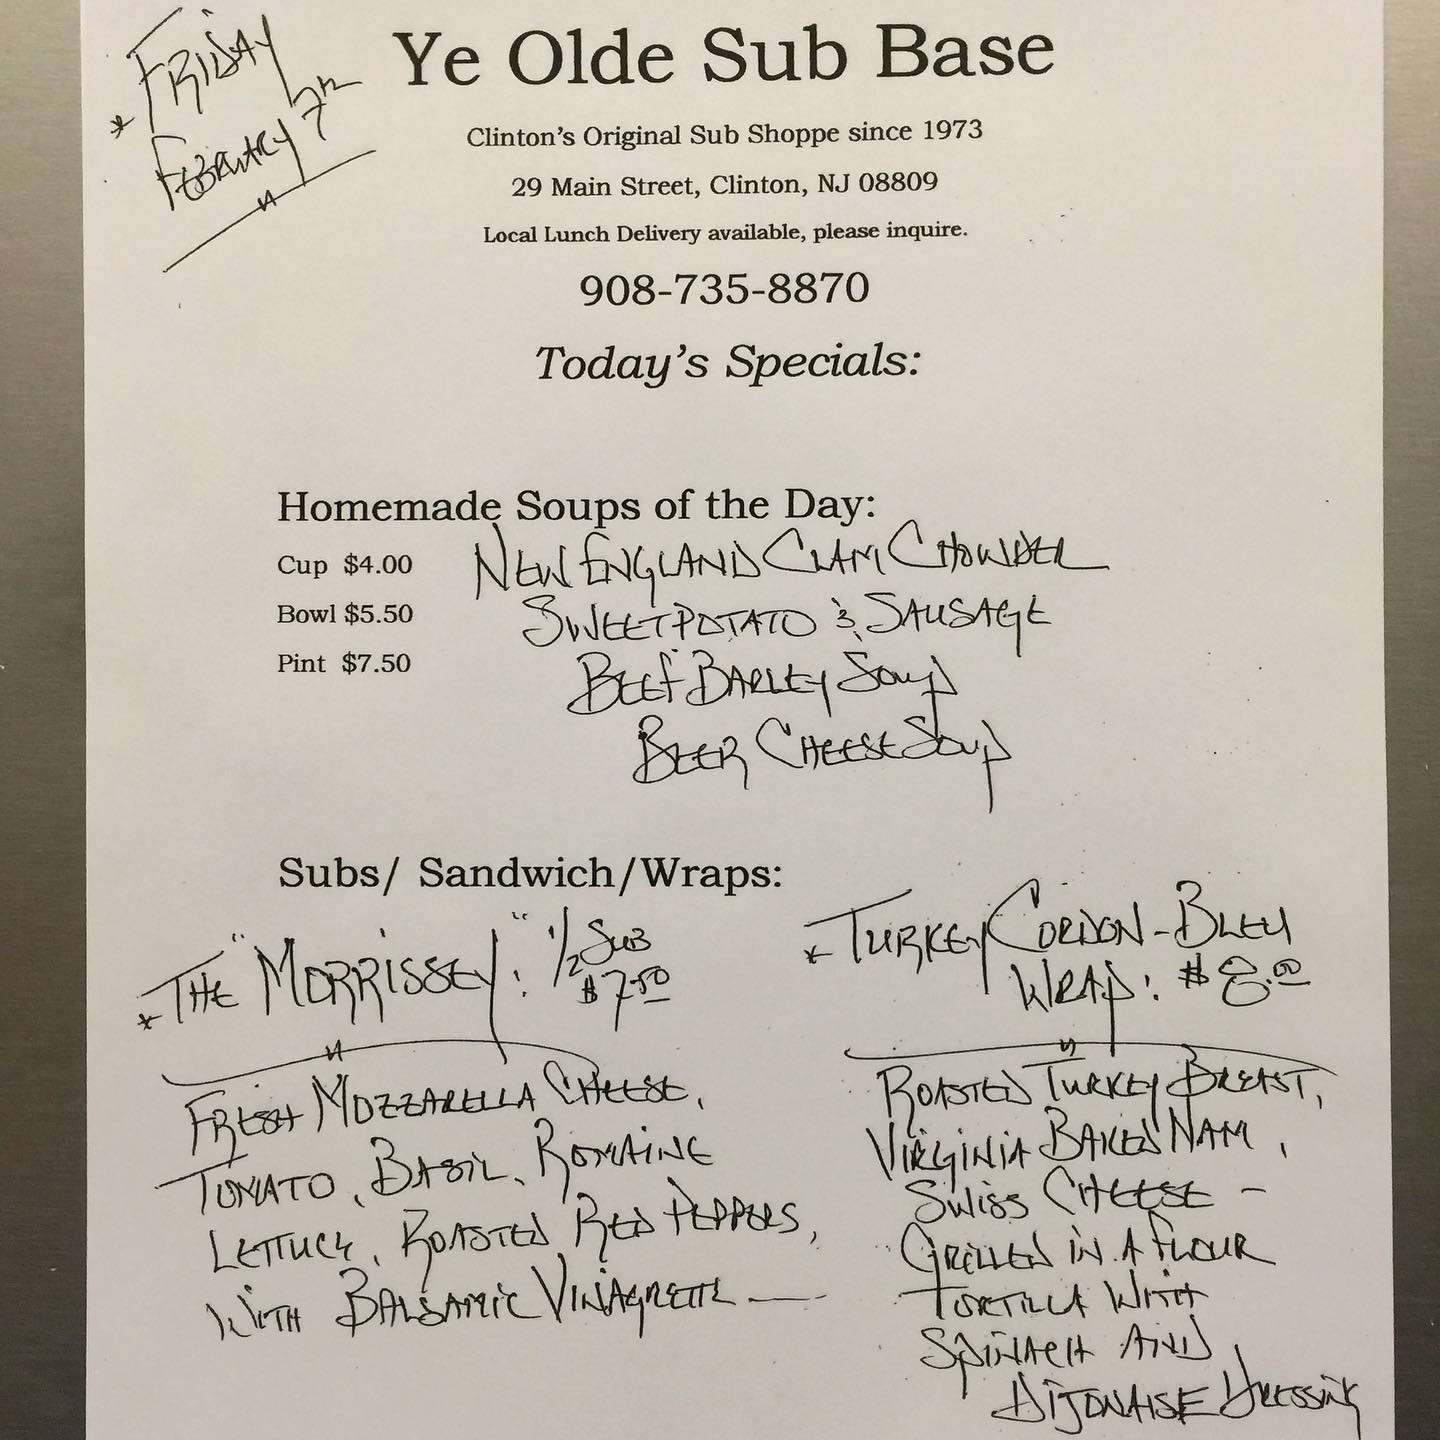 * FRIDAY
FEBRUARY 7th
Ye Olde Sub Base
Clinton's Original Sub Shoppe since 1973
29 Main Street, Clinton, NJ 08809
Local Lunch Delivery available, please inquire.
908-735-8870
Today's Specials:
Homemade Soups of the Day:
Cup $4.00
Bowl $5.50
Pint $7.50
NEW ENGLAND CLAM CHOWDER
SWEET POTATO & SAUSAGE
BEEF BARLEY SOUP
BEER CHEESE SOUP
Subs/ Sandwich/Wraps:
* THE "MORRISSEY": 1/2 SUB
$7.50
FRESH MOZZARELLA CHEESE,
TOMATO, BASIL, ROMAINE
LETTUCE, ROASTED RED PEPPERS,
WITH BALSAMIC VINAGRETTE —
* TURKEY CORDON-BLEU
WRAP: $8.00
ROASTED TURKEY BREAST,
VIRGINIA BAKED HAM,
SWISS CHEESE -
GRILLED IN A FLOUR
TORTILLA WITH
SPINACH AND
DIJONAISE DRESSING